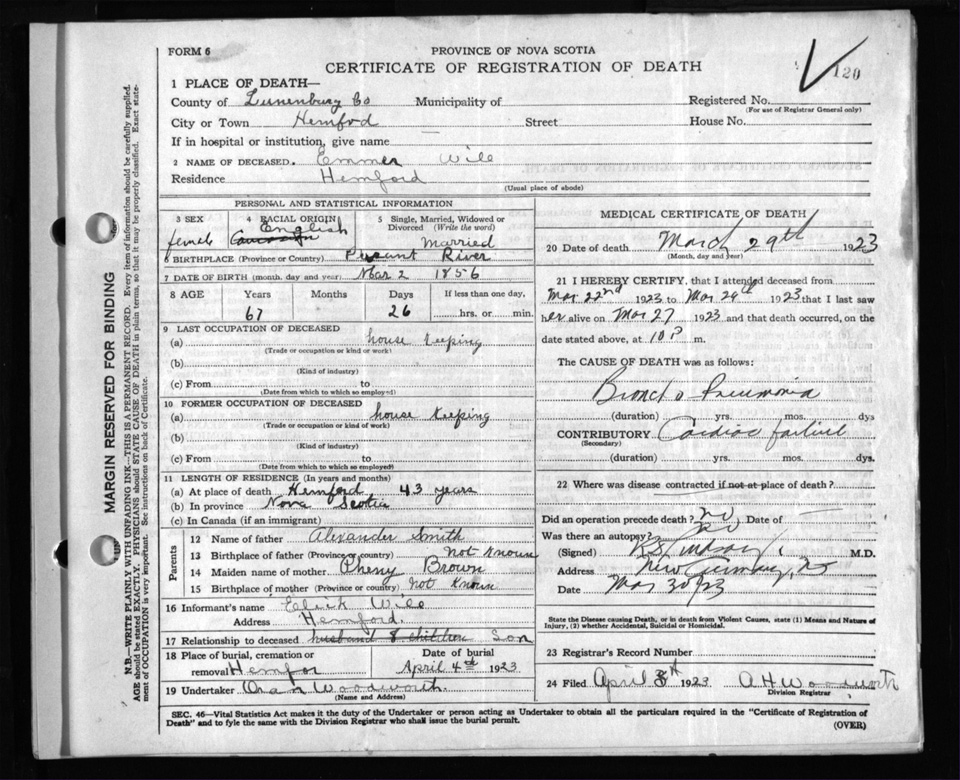 FORM 6
PROVINCE OF NOVA SCOTIA
CERTIFICATE OF REGISTRATION OF DEATH
120
1 PLACE OF DEATH—
County of Lunenburg Co Municipality of Registered No.
(For use of Registrar General only)
City or Town Hemford Street House No.
If in hospital or institution, give name —
2 NAME OF DECEASED. Emmer Wile
Residence Hemford
(Usual place of abode)
PERSONAL AND STATISTICAL INFORMATION
3 SEX 4 RACIAL ORIGIN 5 Single, Married, Widowed or Divorced (Write the word)
female English Married
6 BIRTHPLACE (Province or Country) River
7 DATE OF BIRTH (month, day and year) Mar 2 1856
8 AGE Years Months Days If less than one day,
67 26 hrs. or min.
9 LAST OCCUPATION OF DECEASED
(a) house keeping
(Trade or occupation or kind of work)
(b)
(Kind of industry)
(c) From to
(Date from which to which so employed)
10 FORMER OCCUPATION OF DECEASED
(a) house keeping
(Trade or occupation or kind of work)
(b)
(Kind of industry)
(c) From to
(Date from which to which so employed)
11 LENGTH OF RESIDENCE (In years and months)
(a) At place of death Hemford 43 years
(b) In province Nova Scotia
(c) In Canada (if an immigrant)
Parents
12 Name of father Alexander Smith
13 Birthplace of father (Province or country) Not knoun
14 Maiden name of mother Pheny Brown
15 Birthplace of mother (Province or country) Not Knoun
16 Informant's name Wile
Address Hemford.
17 Relationship to deceased husband & children Son
18 Place of burial, cremation or removal Hemfor
Date of burial April 4th 1923
19 Undertaker Oran Woodworth.
(Name and Address)
MEDICAL CERTIFICATE OF DEATH
20 Date of death March 29th 1923
(Month, day and year)
21 I HEREBY CERTIFY, that I attended deceased from
Mar 22nd 1923 to Mar 29th 1923 that I last saw
her alive on Mar 27 1923 and that death occurred, on the
date stated above, at 10 P m.
The CAUSE OF DEATH was as follows:
Broncho Pneumonia
(duration) yrs. mos. dys
CONTRIBUTORY Cardiac failure
(Secondary)
(duration) yrs. mos. dys.
22 Where was disease contracted if not at place of death?
Did an operation precede death? no Date of —
Was there an autopsy? no
(Signed) M.D.
Address New Germany, NS
Date Mar 30/23
State the Disease causing Death, or in death from Violent Causes, state (1) Means and Nature of
Injury, (2) whether Accidental, Suicidal or Homicidal.
23 Registrar's Record Number
24 Filed April 1923 A H Woodworth
Division Registrar
SEC. 46—Vital Statistics Act makes it the duty of the Undertaker or person acting as Undertaker to obtain all the particulars required in the "Certificate of Registration of
Death" and to fyle the same with the Division Registrar who shall issue the burial permit.
(OVER)
MARGIN RESERVED FOR BINDING
N.B.—WRITE PLAINLY WITH UNFADING INK—THIS IS A PERMANENT RECORD. Every item of information should be carefully supplied.
AGE should be stated EXACTLY. PHYSICIANS should STATE CAUSE OF DEATH in plain terms, so that it may be properly classified. Exact state-
ment of OCCUPATION is very important. See instructions on back of Certificate.